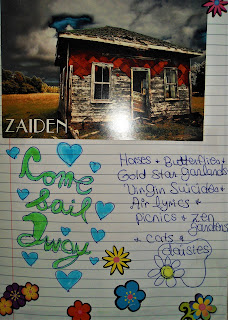 ZAIDEN
Come
Sail
Away
Horses + Butterflies +
Gold Star Garlands
Virgin Suicides +
Air lyrics +
picnics + zen
gardens
+ cats +
daisies